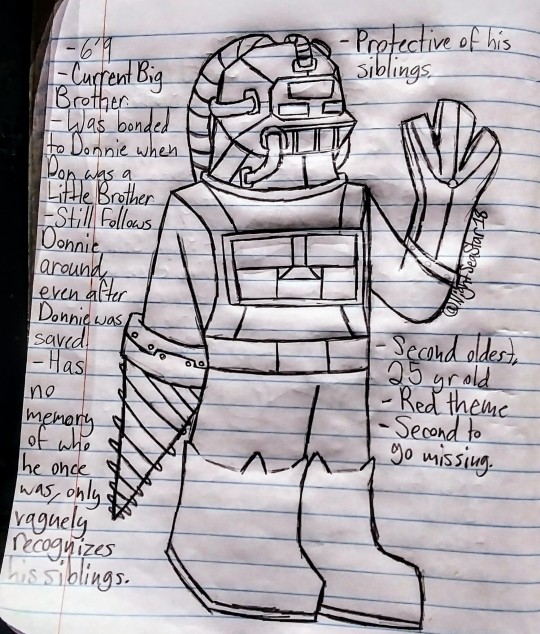 - 6'9
- Current Big
Brother.
- Was bonded
to Donnie when
Don was a
Little Brother
- Still follows
Donnie
around,
even after
Donnie was
saved.
- Has
no
memory
of who
he once
was, only
vaguely
recognizes
his siblings.
- Protective of his
siblings
- Second oldest,
25 yr old
- Red theme
- Second to
go missing.